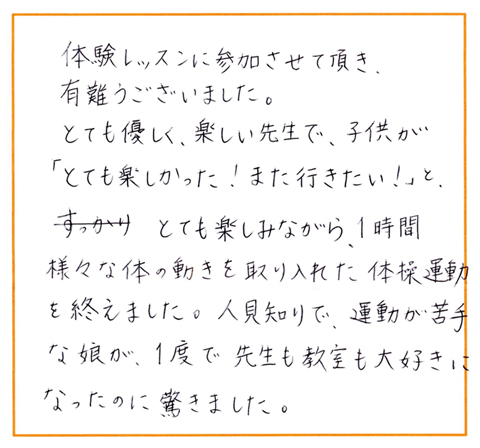 体験レッスンに参加させて頂き、
有難うございました。
とても優しく、楽しい先生で、子供が
「とても楽しかった！また行きたい！」と、
すっかり とても楽しみながら、1時間
様々な体の動きを取り入れた 体操運動
を終えました。人見知りで、運動が苦手
な娘が、1度で 先生も教室も大好きに
なったのに驚きました。